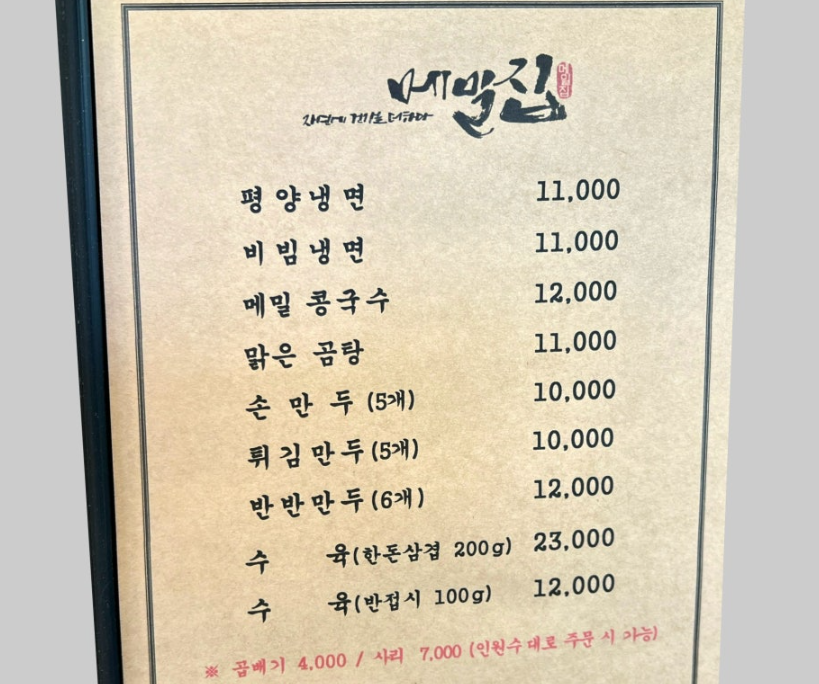 메밀집
메밀집
평양냉면 11,000
비빔냉면 11,000
메밀 콩국수 12,000
맑은 곰탕 11,000
손만두 (5개) 10,000
튀김만두 (5개) 10,000
반반만두 (6개) 12,000
수 육(한돈삼겹 200g) 23,000
수 육(반접시 100g) 12,000
※ 곱배기 4,000 / 사리 7,000 (인원수대로 주문 시 가능)